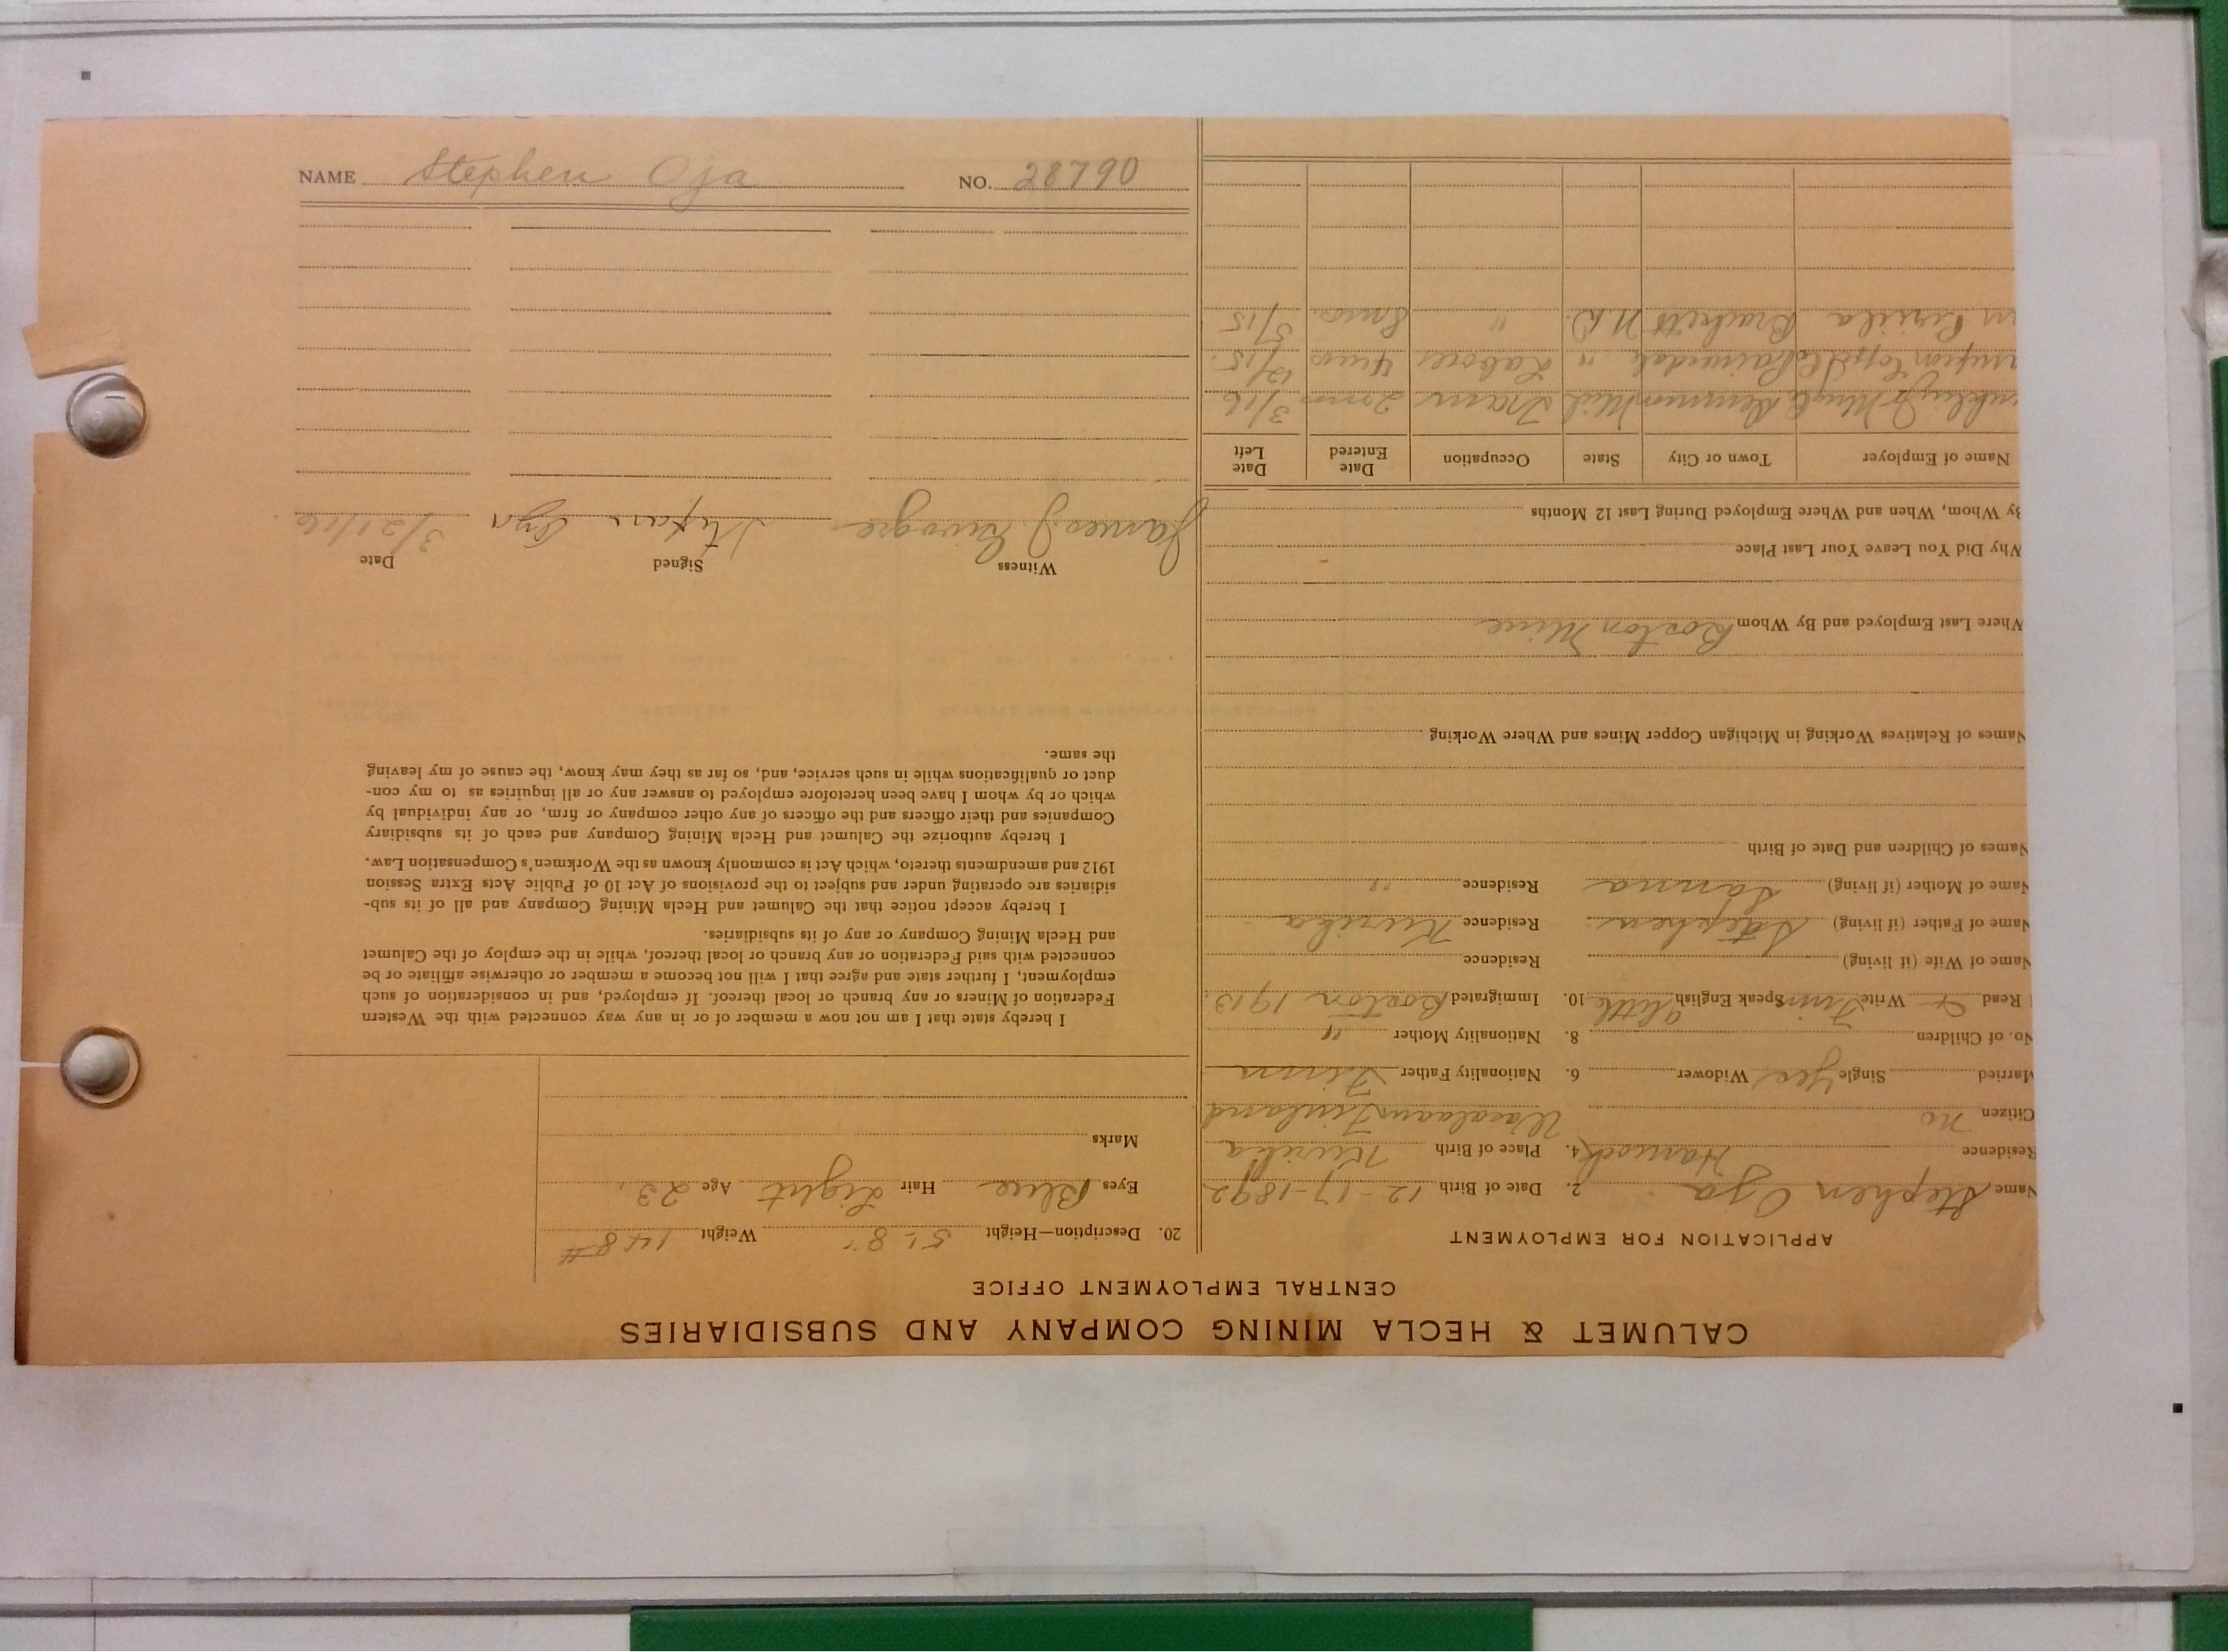 NAME Stephen Oja NO. 28790
CALUMET & HECLA MINING COMPANY AND SUBSIDIARIES
CENTRAL EMPLOYMENT OFFICE
APPLICATION FOR EMPLOYMENT
Name Stephen Oja 2. Date of Birth 12-17-1892
Residence Hancock 4. Place of Birth Kurika
Citizen no Finland
Married Single Yes Widower 6. Nationality Father Finn
No. of Children 8. Nationality Mother "
Read & Write Finn Speak English little 10. Immigrated Boston 1913
Name of Wife (if living) Residence
Name of Father (if living) Stephen Residence Kurika
Name of Mother (if living) Sanna Residence "
Names of Children and Date of Birth
Names of Relatives Working in Michigan Copper Mines and Where Working
Where Last Employed and By Whom Boston Mine
Why Did You Leave Your Last Place
By Whom, When and Where Employed During Last 12 Months
Name of Employer Town or City State Occupation Date Entered Date Left
Mich Tram 2 mos 3/16
" Laborer 4 mos 12/15
" 8 mos. 5/15
20. Description—Height 5'-8" Weight 148#
Eyes Blue Hair Light Age 23
Marks
I hereby state that I am not now a member of or in any way connected with the Western
Federation of Miners or any branch or local thereof. If employed, and in consideration of such
employment, I further state and agree that I will not become a member or otherwise affiliate or be
connected with said Federation or any branch or local thereof, while in the employ of the Calumet
and Hecla Mining Company or any of its subsidiaries.
I hereby accept notice that the Calumet and Hecla Mining Company and all of its sub-
sidiaries are operating under and subject to the provisions of Act 10 of Public Acts Extra Session
1912 and amendments thereto, which Act is commonly known as the Workmen's Compensation Law.
I hereby authorize the Calumet and Hecla Mining Company and each of its subsidiary
Companies and their officers and the officers of any other company or firm, or any individual by
which or by whom I have been heretofore employed to answer any or all inquiries as to my con-
duct or qualifications while in such service, and, so far as they may know, the cause of my leaving
the same.
Witness Signed Date
James J. 3/21/16